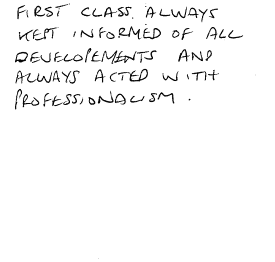 FIRST CLASS. ALWAYS
KEPT INFORMED OF ALL
DEVELOPEMENTS AND
ALWAYS ACTED WITH
PROFESSIONALISM.